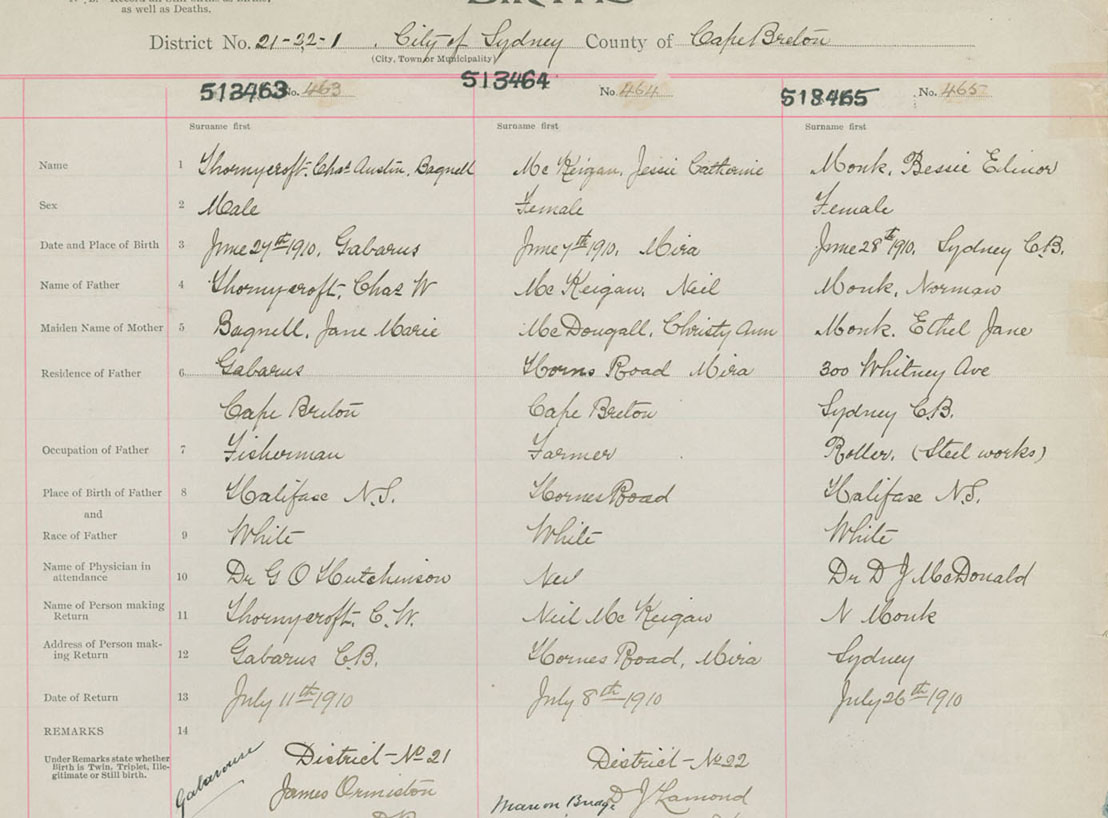 as well as Deaths.
BIRTHS
District No. 21-32-1 . City of Sydney County of Cape Breton
(City, Town or Municipality)
513463 No. 463 513464 No. 464 513465 No. 465
Surname first Surname first Surname first
Name 1 Thornycroft, Chas Austin, Bagnell Mc Keigan, Jessie Catherine Monk, Bessie Elinor
Sex 2 Male Female Female
Date and Place of Birth 3 June 27th 1910, Gabarus June 7th 1910, Mira June 28th 1910, Sydney C.B.
Name of Father 4 Thornycroft, Chas W Mc Keigan, Neil Monk, Norman
Maiden Name of Mother 5 Bagnell, Jane Marie McDougall, Christy Ann Monk, Ethel Jane
Residence of Father 6 Gabarus Horns Road Mira 300 Whitney Ave
Cape Breton Cape Breton Sydney C.B.
Occupation of Father 7 Fisherman Farmer Roller, (Steel works)
Place of Birth of Father 8 Halifax N.S. Hornes Road Halifax N.S.
and
Race of Father 9 White White White
Name of Physician in
attendance 10 Dr G O Hutchinson Dr D J McDonald
Name of Person making
Return 11 Thornycroft, C.W. Neil Mc Keigan N Monk
Address of Person mak-
ing Return 12 Gabarus C.B. Hornes Road, Mira Sydney
Date of Return 13 July 11th 1910 July 8th 1910 July 26th 1910
REMARKS 14
Under Remarks state whether
Birth is Twin, Triplet, Ille-
gitimate or Still birth.
District - No 21 District - No 22
Gabarouse James Ormiston Marion Bridge D J Lamond